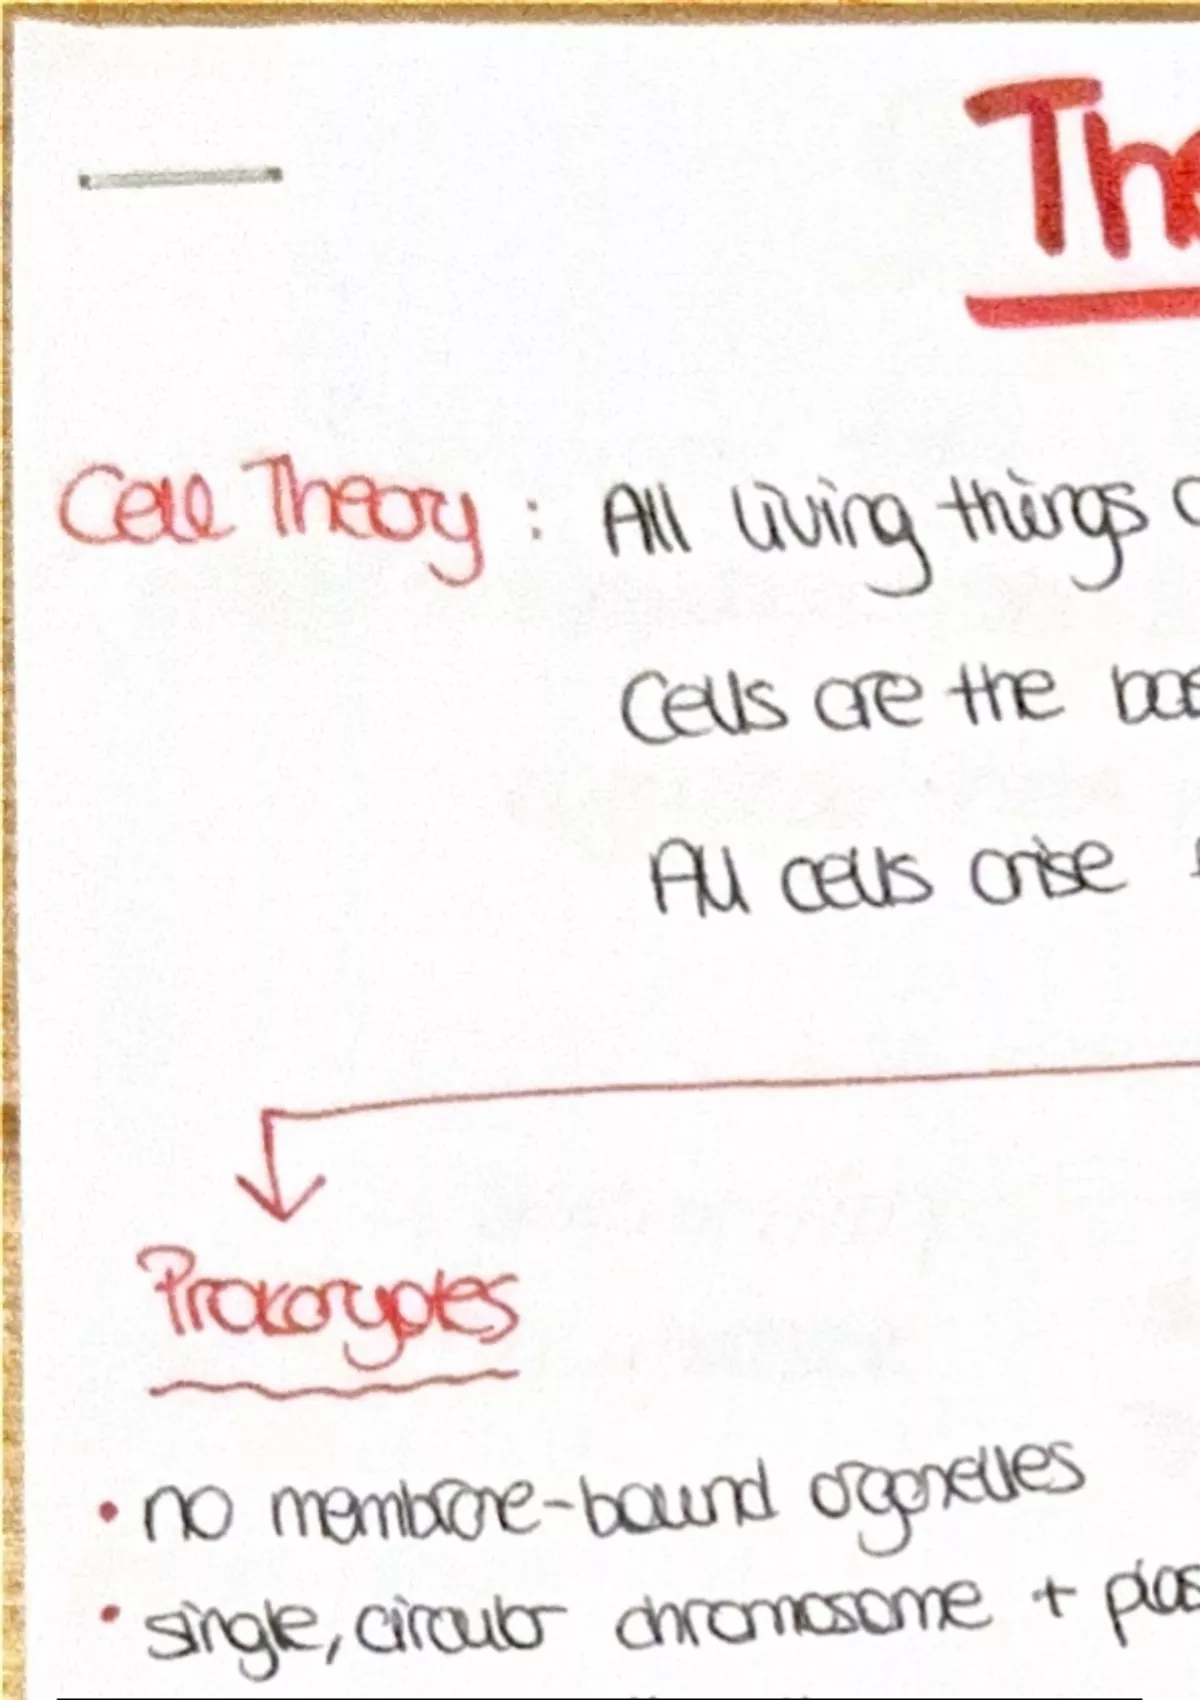 The
Cell Theory : All living things c
Cells are the bas
All cells arise f
Prokaryotes
• no membrane-bound organelles
• single, circular chromosome + plas